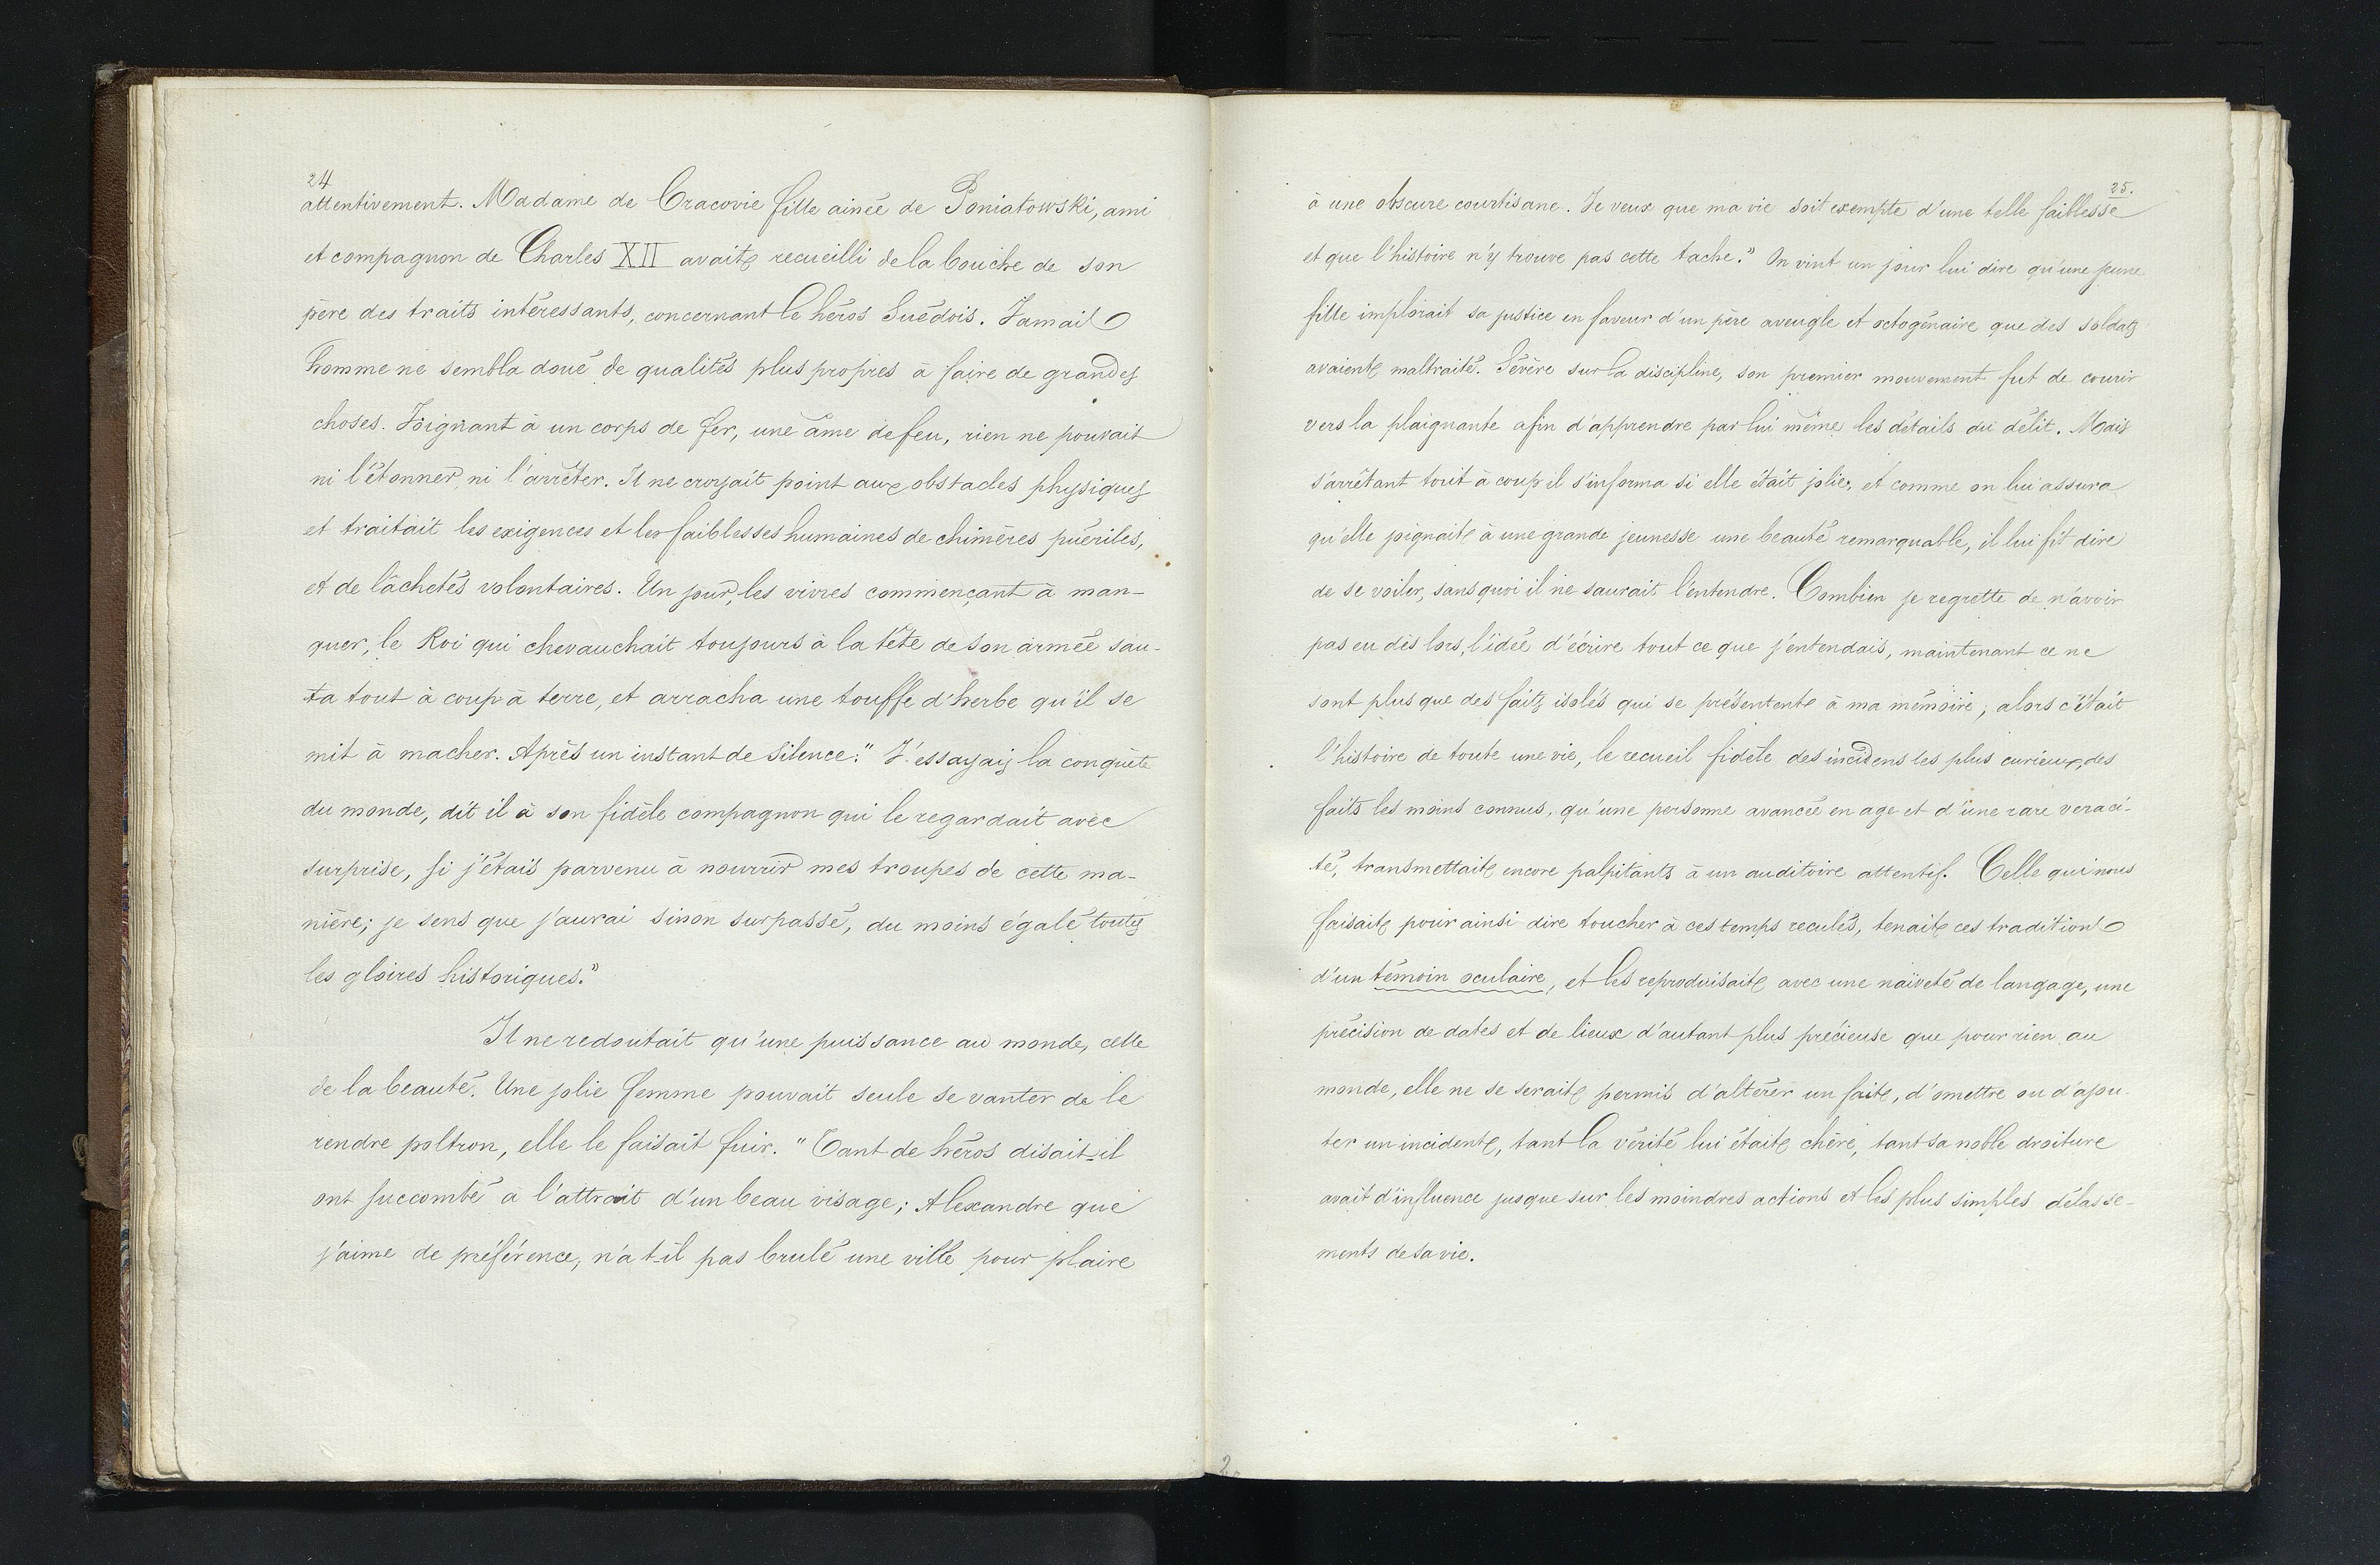 24
attentivement. Madame de Cracovie fille ainée de Poniatowski, ami
et compagnon de Charles XII avait recueilli de la bouche de son
père des traits intéressants, concernant le héros Suédois. Jamais
homme ne sembla doué de qualités plus propres à faire de grandes
choses. Joignant à un corps de fer, une âme de feu, rien ne pouvait
ni l'étonner, ni l'arrêter. Il ne croyait point aux obstacles physiques
et traitait les exigences et les faiblesses humaines de chimères puériles,
et de lâchetés volontaires. Un jour, les vivres commençant à man-
quer, le Roi qui chevauchait toujours à la tête de son armée sau-
ta tout à coup à terre, et arracha une touffe d'herbe qu'il se
mit à macher. Après un instant de silence: "J'essayais la conquête
du monde, dit il à son fidèle compagnon qui le regardait avec
surprise, si j'étais parvenu à nourrir mes troupes de cette ma-
nière; je sens que j'aurai sinon surpassé, du moins égalé toutes
les gloires historiques."
Il ne redoutait qu'une puissance au monde, celle
de la beauté. Une jolie femme pouvait seule se vanter de le
rendre poltron, elle le faisait fuir. "Tant de héros disait-il
ont succombé à l'attrait d'un beau visage; Alexandre que
j'aime de préférence, n'a t-il pas brulé une ville pour plaire
25.
à une obscure courtisane. Je veux que ma vie soit exempte d'une telle faiblesse
et que l'histoire n'y trouve pas cette tache." On vint un jour lui dire qu'une jeune
fille implorait sa justice en faveur d'un père aveugle et octogénaire que des soldats
avaient maltraité. Sévère sur la discipline, son premier mouvement fut de courir
vers la plaignante afin d'apprendre par lui même les détails du délit. Mais
s'arrêtant tout à coup il s'informa si elle était jolie, et comme on lui assura
qu'elle joignait à une grande jeunesse une beauté remarquable, il lui fit dire
de se voiler, sans quoi il ne saurait l'entendre. Combien je regrette de n'avoir
pas eu dès lors, l'idée d'écrire tout ce que j'entendais, maintenant ce ne
sont plus que des faits isolés qui se présentent à ma mémoire; alors c'était
l'histoire de toute une vie, le recueil fidèle des incidens les plus curieux, des
faits les moins connus, qu'une personne avancée en age et d'une rare veraci-
té, transmettait encore palpitants à un auditoire attentif. Celle qui nous
faisait pour ainsi dire toucher à ces temps reculés, tenait ces traditions
d'un témoin oculaire, et les reproduisait avec une naïveté de langage, une
précision de dates et de lieux d'autant plus précieuse que pour rien au
monde, elle ne se serait permis d'altérer un fait, d'omettre ou d'ajou-
ter un incident, tant la vérité lui était chère, tant sa noble droiture
avait d'influence jusque sur les moindres actions et les plus simples délasse-
ments de sa vie.